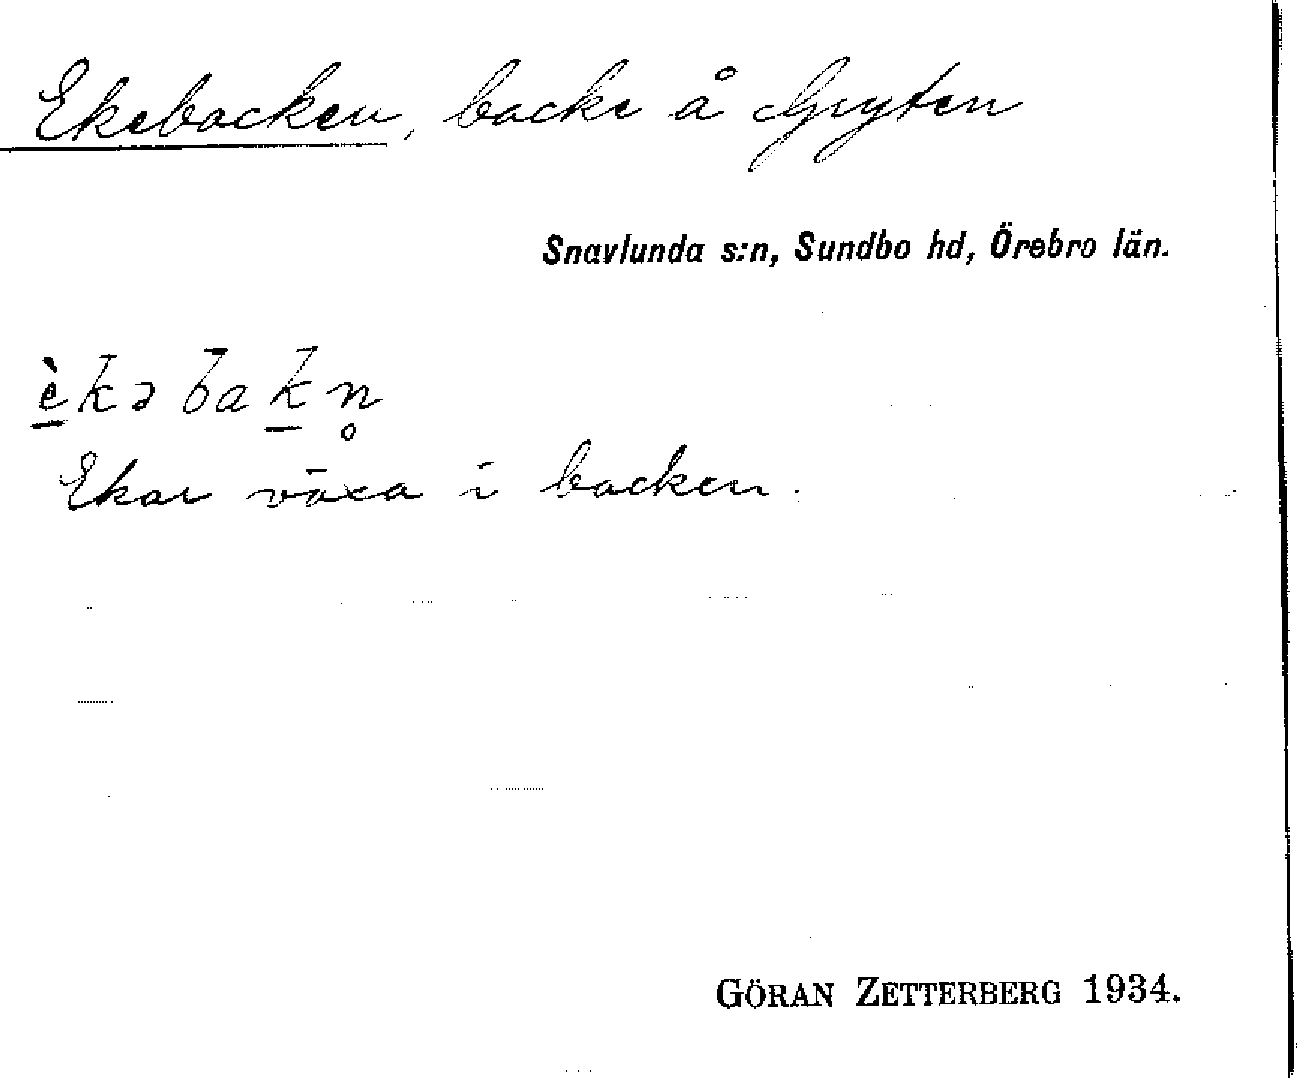 Ekebacken, backe å Gryten
Snavlunda s:n, Sundbo hd, Örebro län.
è̱kəbaḵn̥
Ekar växa i backen.
GÖRAN ZETTERBERG 1934.